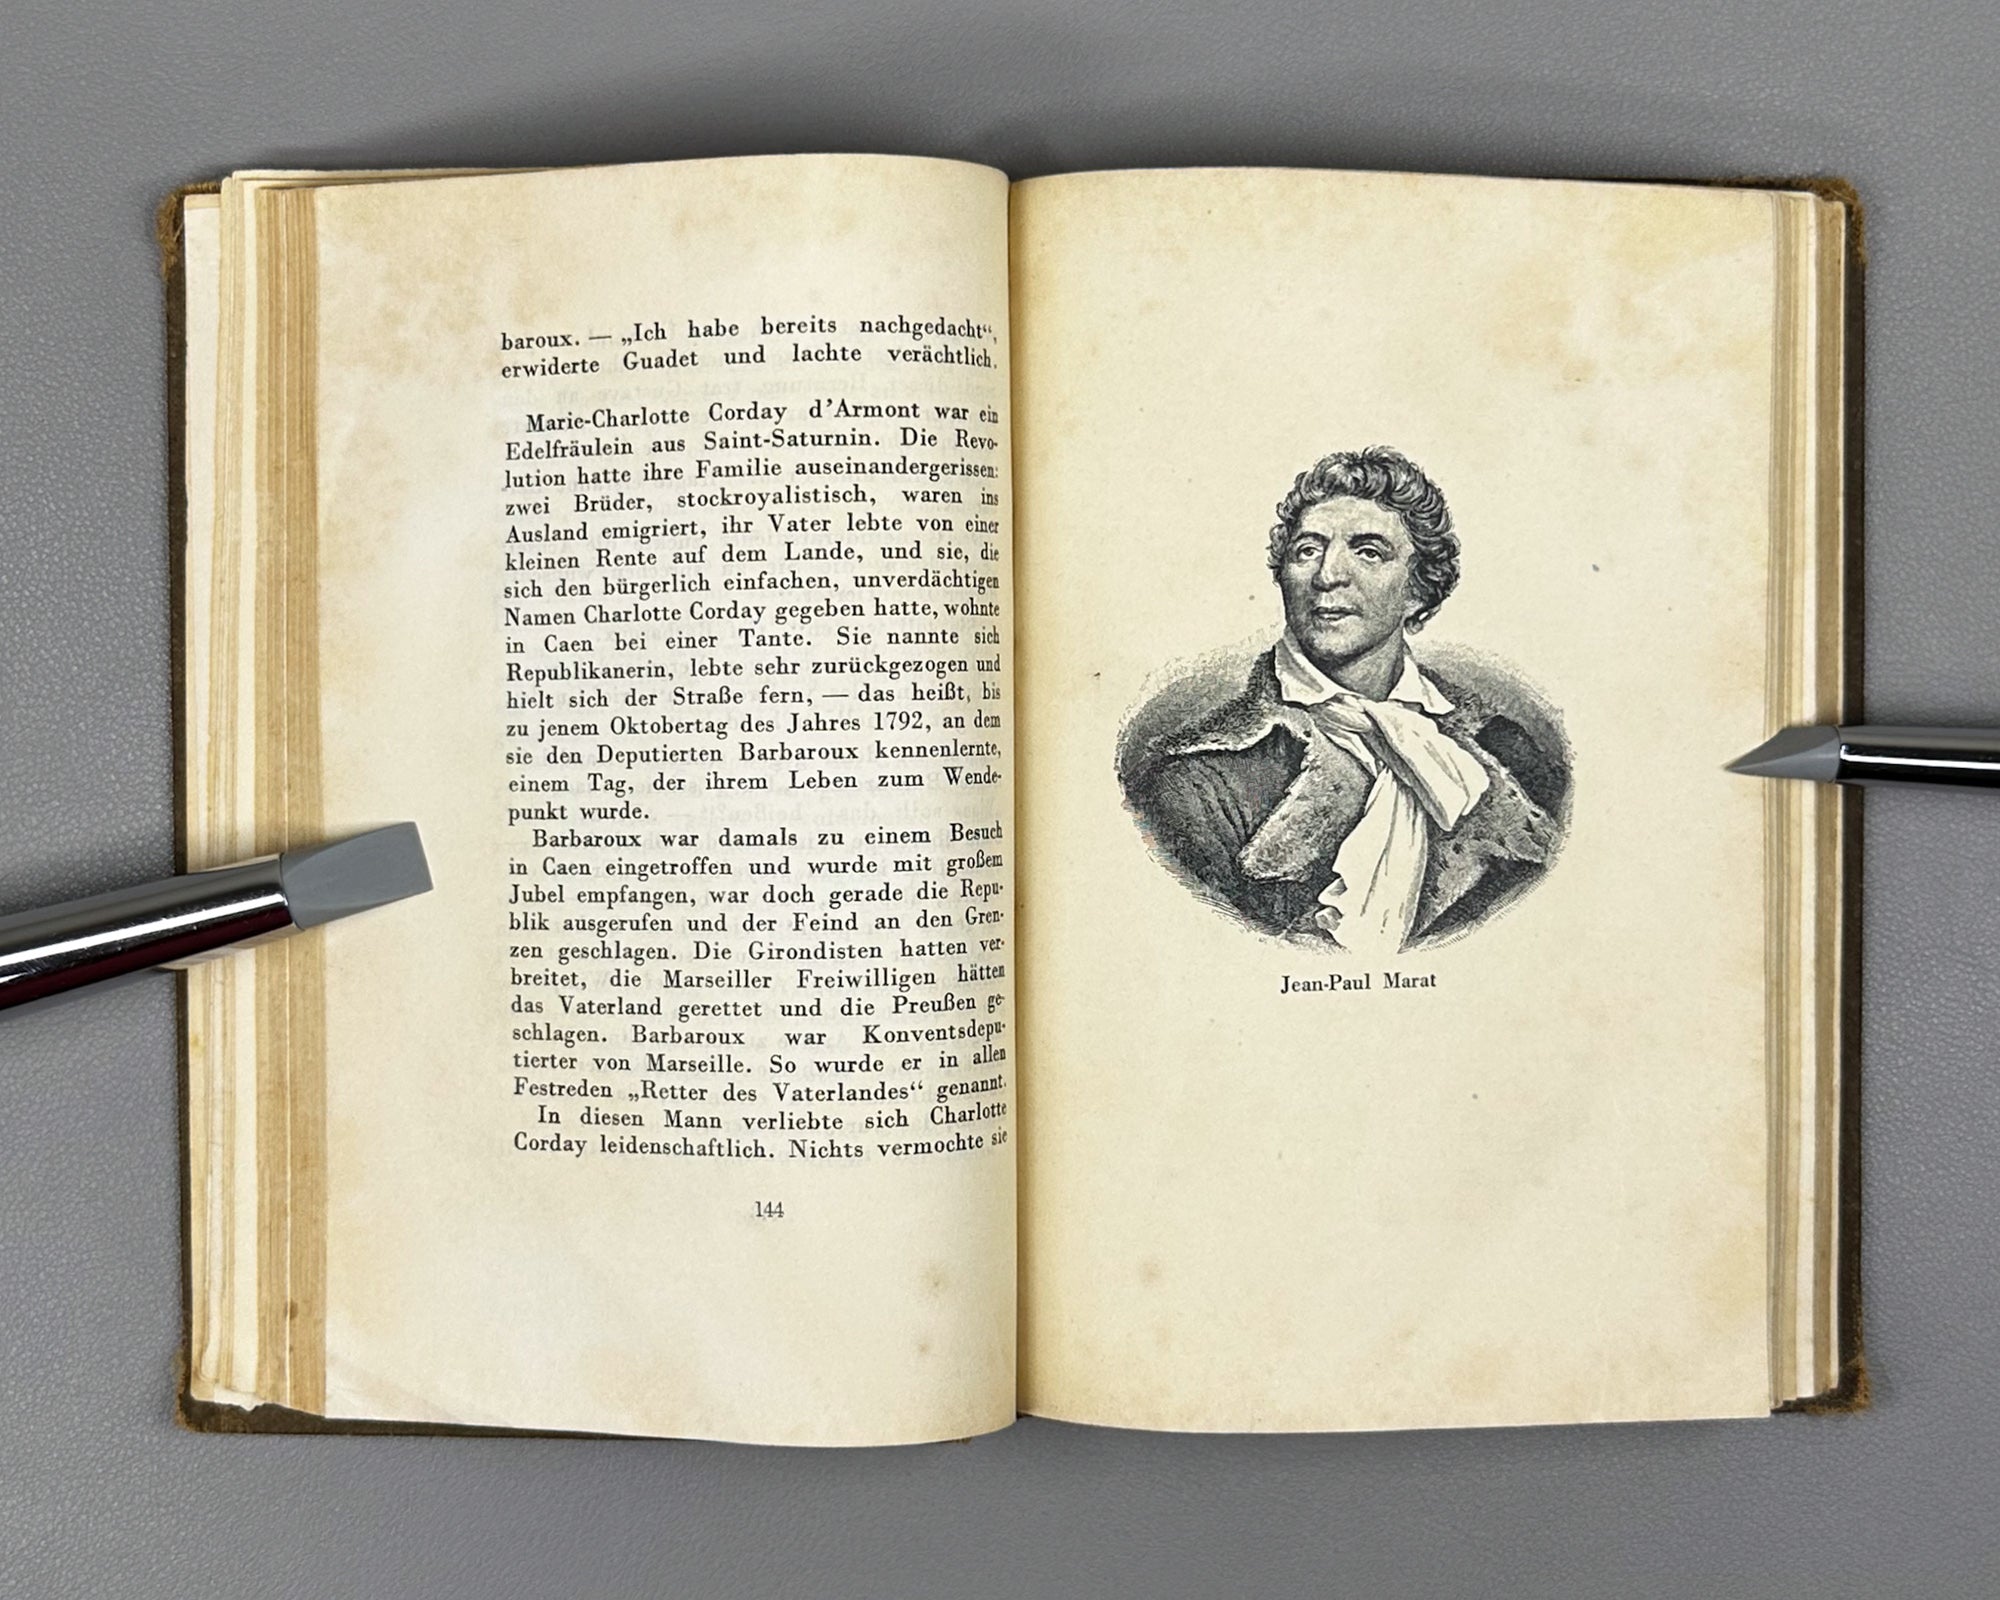 baroux. — „Ich habe bereits nachgedacht“,
erwiderte Guadet und lachte verächtlich.
Marie-Charlotte Corday d’Armont war ein
Edelfräulein aus Saint-Saturnin. Die Revo-
lution hatte ihre Familie auseinandergerissen:
zwei Brüder, stockroyalistisch, waren ins
Ausland emigriert, ihr Vater lebte von einer
kleinen Rente auf dem Lande, und sie, die
sich den bürgerlich einfachen, unverdächtigen
Namen Charlotte Corday gegeben hatte, wohnte
in Caen bei einer Tante. Sie nannte sich
Republikanerin, lebte sehr zurückgezogen und
hielt sich der Straße fern, — das heißt, bis
zu jenem Oktobertag des Jahres 1792, an dem
sie den Deputierten Barbaroux kennenlernte,
einem Tag, der ihrem Leben zum Wende-
punkt wurde.
Barbaroux war damals zu einem Besuch
in Caen eingetroffen und wurde mit großem
Jubel empfangen, war doch gerade die Repu-
blik ausgerufen und der Feind an den Gren-
zen geschlagen. Die Girondisten hatten ver-
breitet, die Marseiller Freiwilligen hätten
das Vaterland gerettet und die Preußen ge-
schlagen. Barbaroux war Konventsdepu-
tierter von Marseille. So wurde er in allen
Festreden „Retter des Vaterlandes“ genannt.
In diesen Mann verliebte sich Charlotte
Corday leidenschaftlich. Nichts vermochte sie
144
Jean-Paul Marat